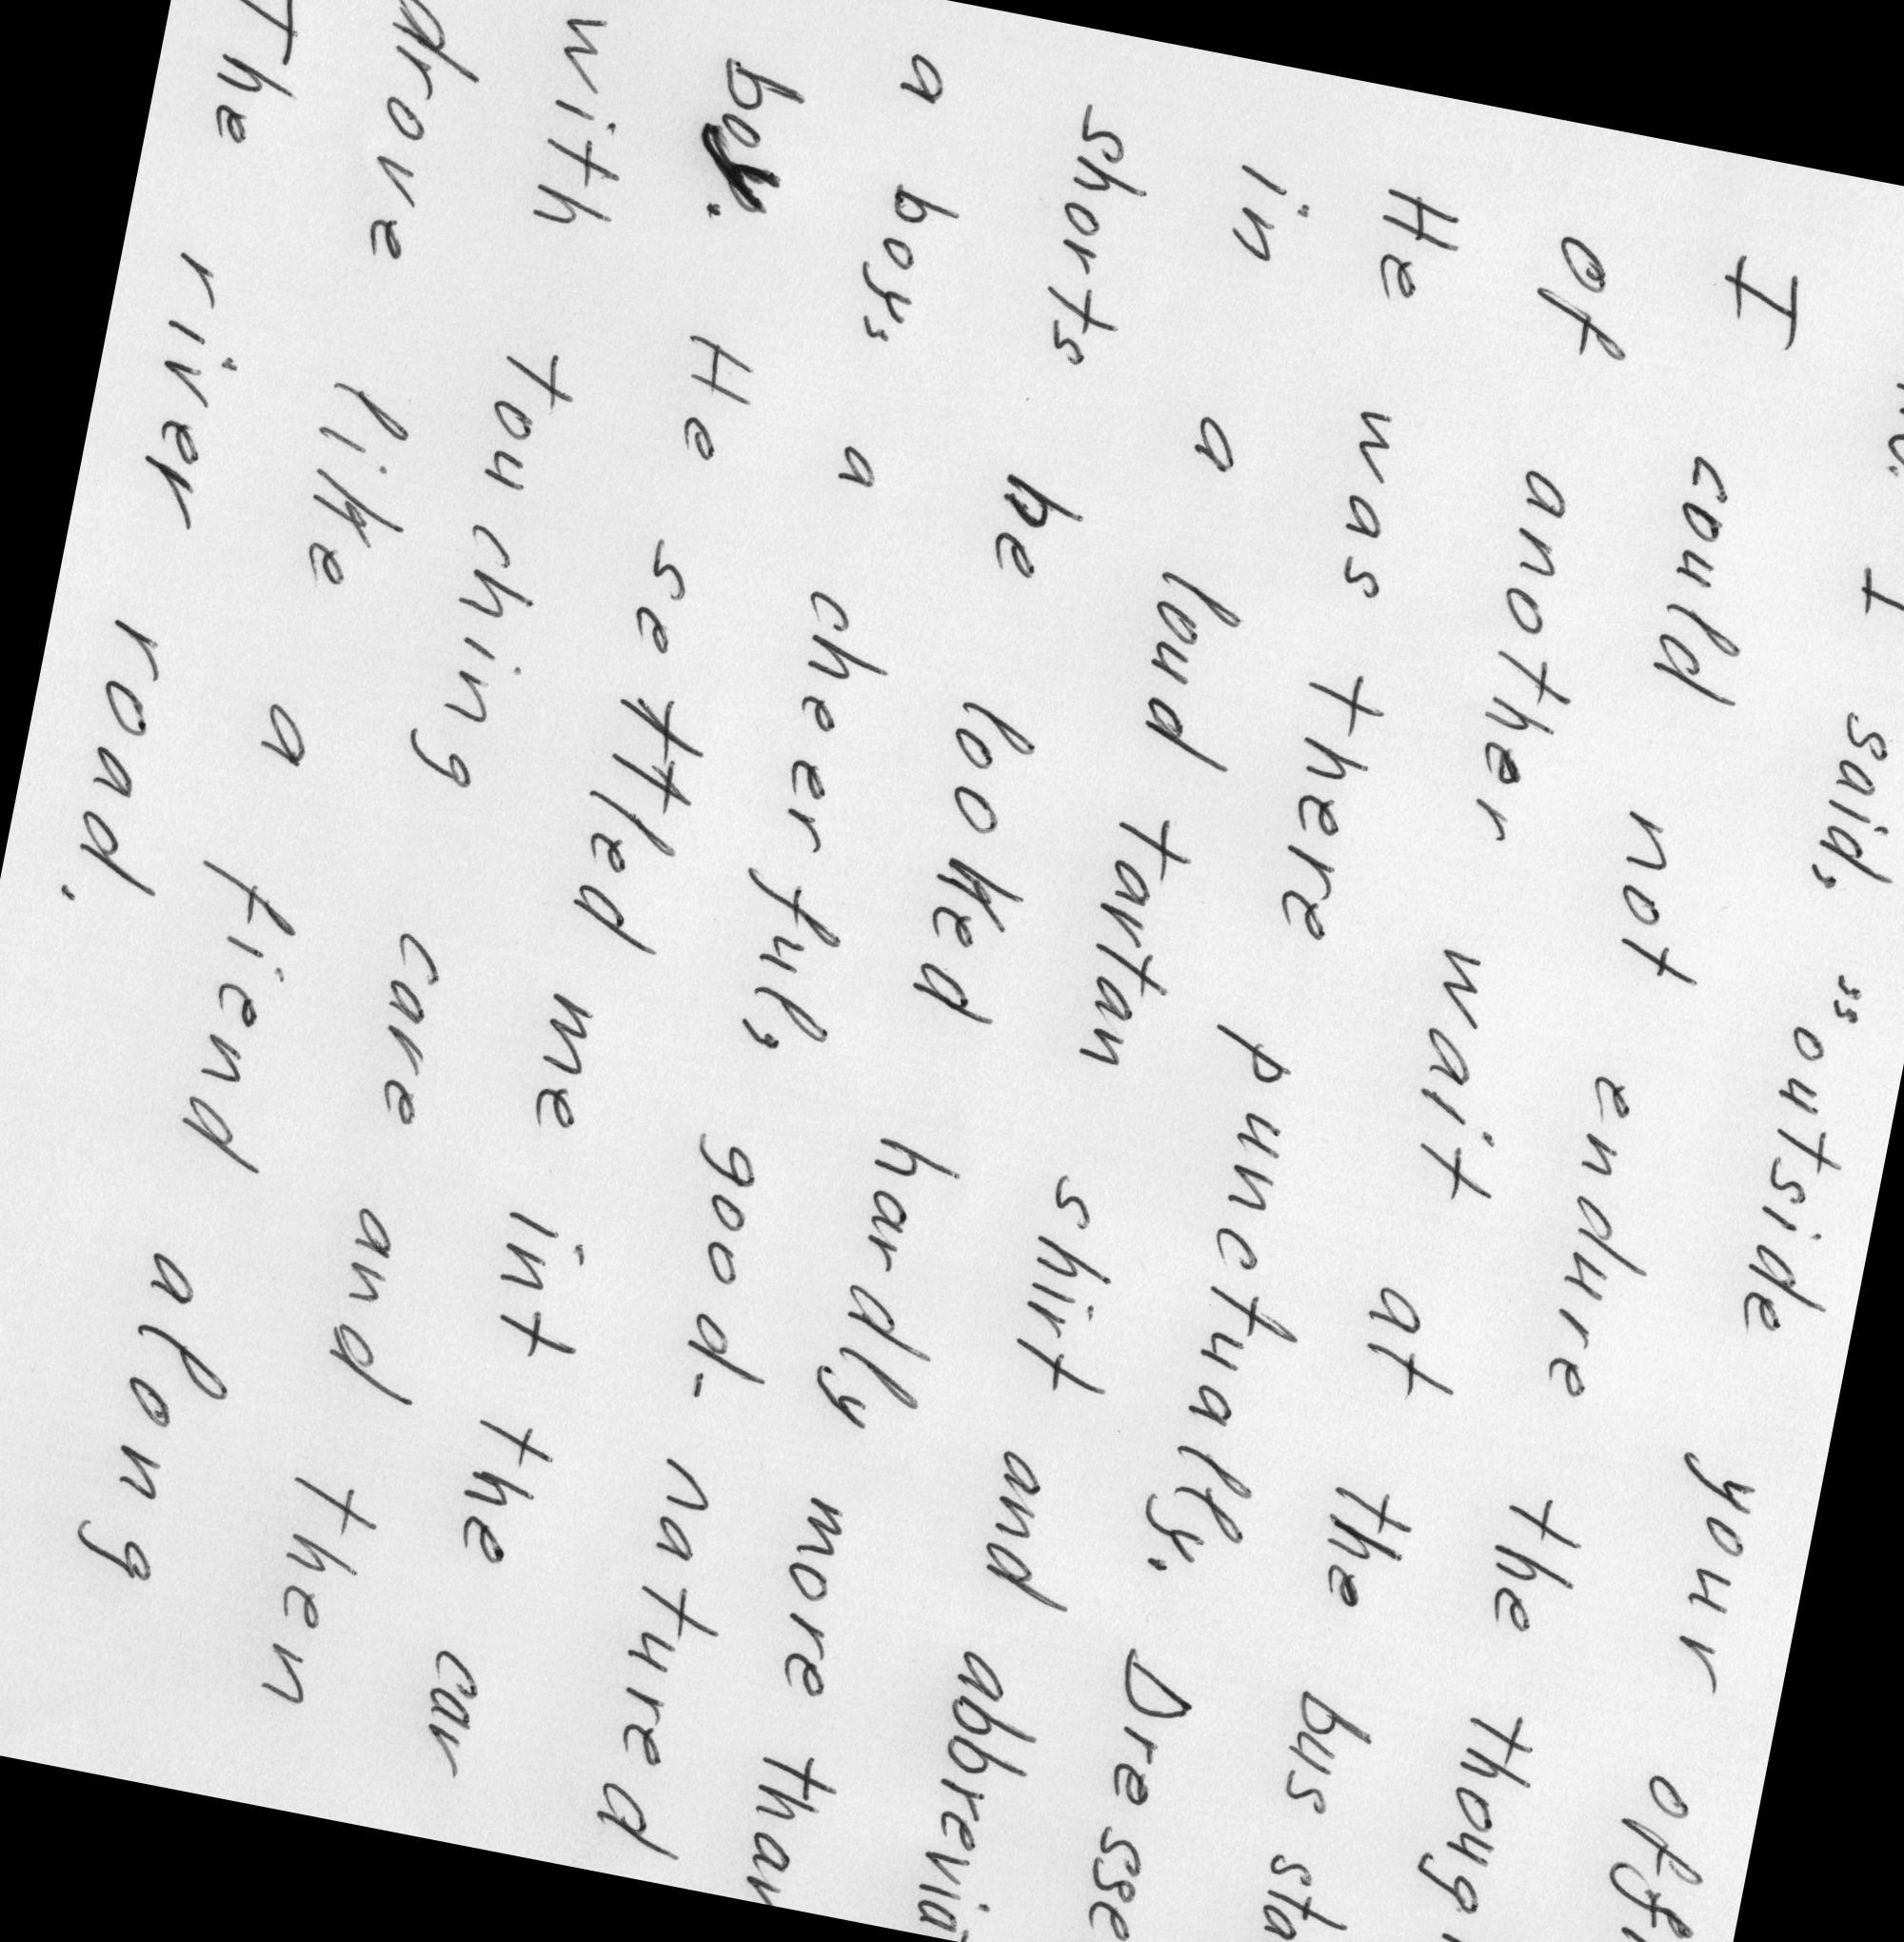 I said, "outside your
I could not endure the
of another wait at the bus
He was there punctually.
in a loud tartan shirt and
shorts he looked hardly more than
a boy, a cheerful, good-natured
boy. He settled me int the car
with touching care and then
drove like a fiend along
The river road.